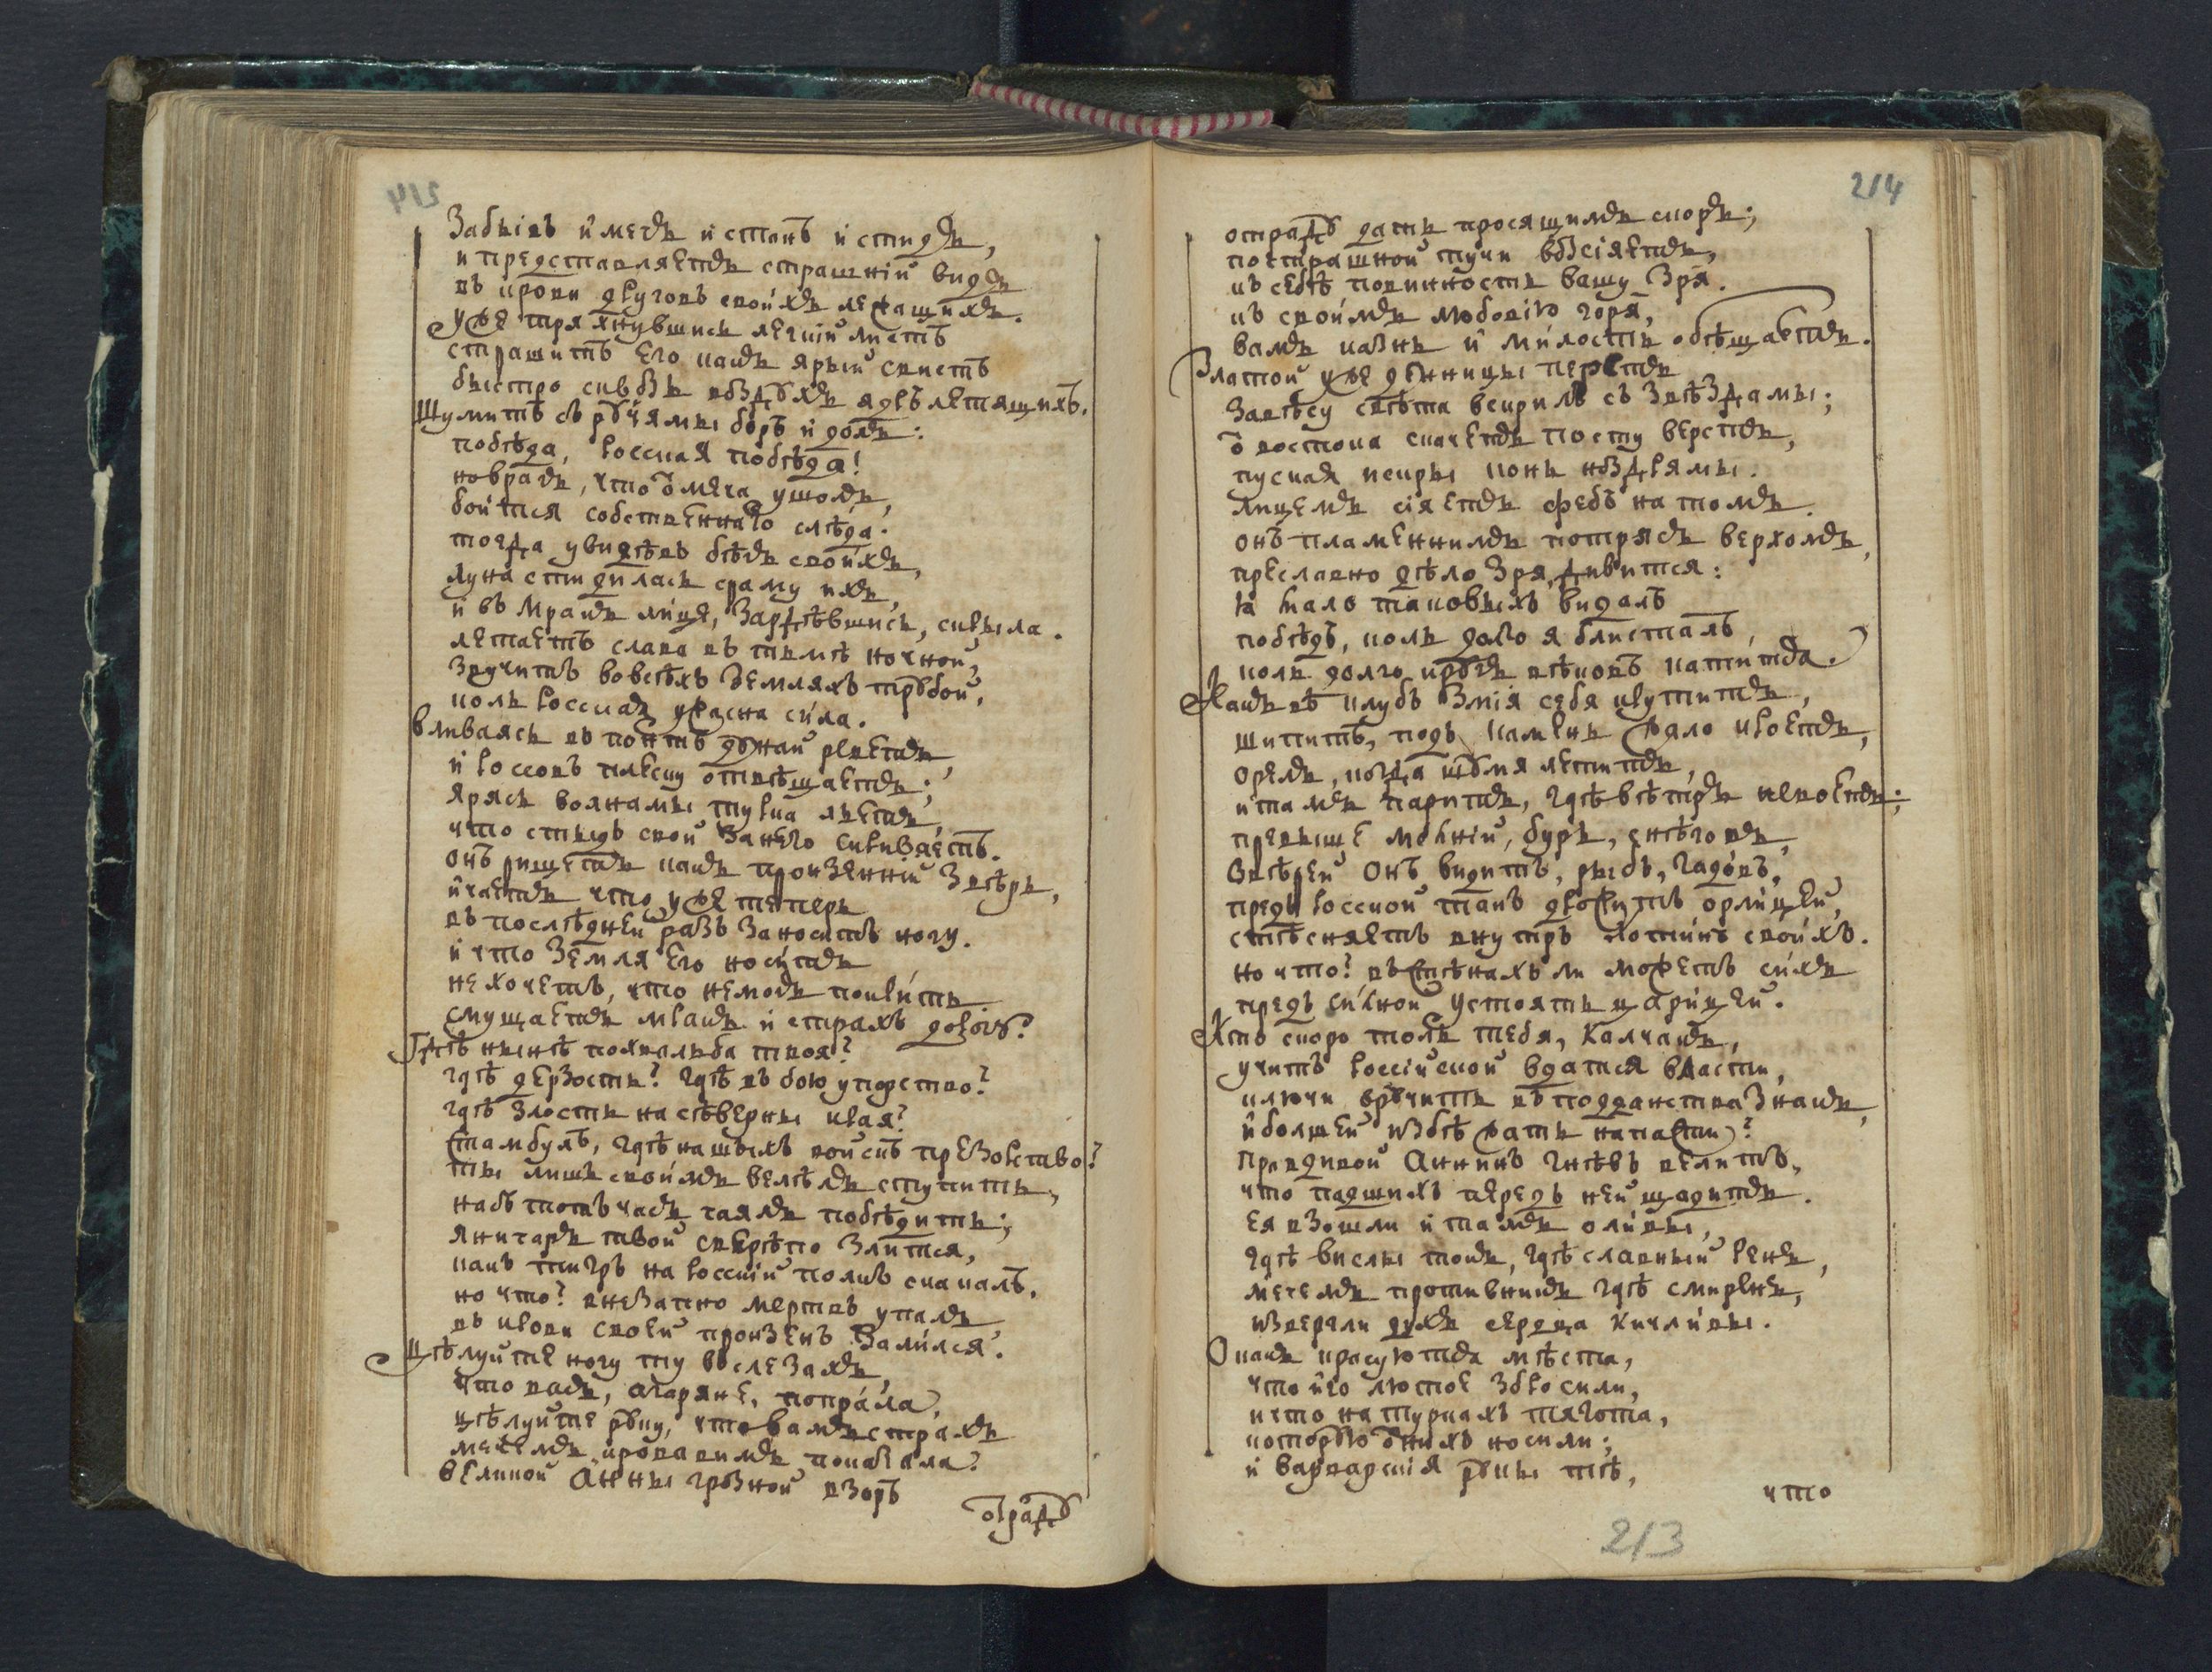 413
Забывъ и мечъ и станъ и стидъ,
и представляетъ страшній видъ
въ крови друговъ своихъ лежащихъ.
Уже тряхнувшись легкій листъ
страшитъ его какъ ярый свистъ
быстро сквозь воздухъ ядръ летящихъ.
Шумитъ съ ручями боръ и долъ:
побѣда, росская побѣда!
но врагъ, что ѿ меча ушолъ,
боится собственнаго слѣда.
тогда увидѣвъ бѣгъ своихъ,
луна стидилась сраму ихъ,
и въ мракъ лице, зардѣвшись, скрыла.
летаетъ слава въ тьмѣ ночной,
звучитъ во всѣхъ земляхъ трубой,
коль росская ужасна сила.
вливаясь въ понтъ дунай реветъ,
и россовъ плеску отвѣщаетъ;
ярясь волнамы турка льетъ,
что стыдъ свой за него скриваетъ.
онъ рищетъ какъ произенній звѣрь,
и чаетъ что уже теперь
въ послѣдней разъ заноситъ ногу.
и что земля его носитъ
не хочетъ, что немогъ покрить
смущаетъ мракъ и страхъ дорогу.
Гдѣ нынѣ похвальба твоя?
гдѣ дерзость? гдѣ въ бою упорство?
гдѣ злость на сѣверны края?
стамбулъ, гдѣ нашыхъ войскъ презорство?
ты лишь своимъ велѣлъ ступить,
набъ тотъ часъ чаялъ побѣдить;
яничаръ твой свирѣпо злится,
какъ тигръ на росскій полкъ скакалъ.
но что? внезапно мертвъ упалъ
въ крови своей произенъ залился.
Цѣлуйте ногу ту въ слезахъ,
что васъ, агаряне, попрала,
цѣлуйте руку, что вамъ страхъ
мечемъ кровавимъ показала.
великой Анны грозной взоръ
отраду
214
отраду дать просящимъ скоръ;
по страшной тучи возсіяетъ,
къ себѣ повинность вашу зря.
къ своимъ любовію горя,
вамъ казнь и милость обѣщаетъ.
Златой уже денницы перстъ
завѣсу свѣта вскрилъ съ звѣздамы;
ѿ востока скачетъ по сту верстъ,
пуская искры конь ноздрямы.
лицемъ сіяетъ фебъ на томъ.
онъ пламеннимъ потрясъ верхомъ,
преславно дѣло зря, дивится:
я мало таковыхъ видалъ
побѣдъ, коль долго я блисталъ,
коль долго кругъ вѣковъ катится.
Какъ въ клубъ змія себя крутитъ,
шипитъ, подъ камень жало кроетъ,
орелъ, когда шумя летитъ,
и тамъ паритъ, гдѣ вѣтръ не воетъ;
превыше молній, бурь, снѣговъ,
звѣрей онъ видитъ, рыбъ, гадовъ,
предъ россской такъ дрожитъ орлицей,
стѣсняетъ внутрь хотинъ своихъ.
но что? въ стѣнахъ ли можетъ сихъ
предъ силной устоять царицей.
Кто скоро толь тебя, Калчакъ,
учитъ россійской вдатся власти,
ключи вручить въ подданства знакъ,
и болшей избѣжать напасти?
правдивой Аннинъ гнѣвъ велитъ,
что падшихъ передъ ней щадитъ.
ея взошли и тамъ оливы,
гдѣ вислы токъ, гдѣ славный ренъ,
мечемъ противникъ гдѣ смиренъ,
извергли духъ сердца кичливы.
О какъ красуются мѣста,
что иго лютое зброcили,
и что на туркахъ тягота,
которую ѿ нихъ носили;
и варварскія руки тѣ,
что
213